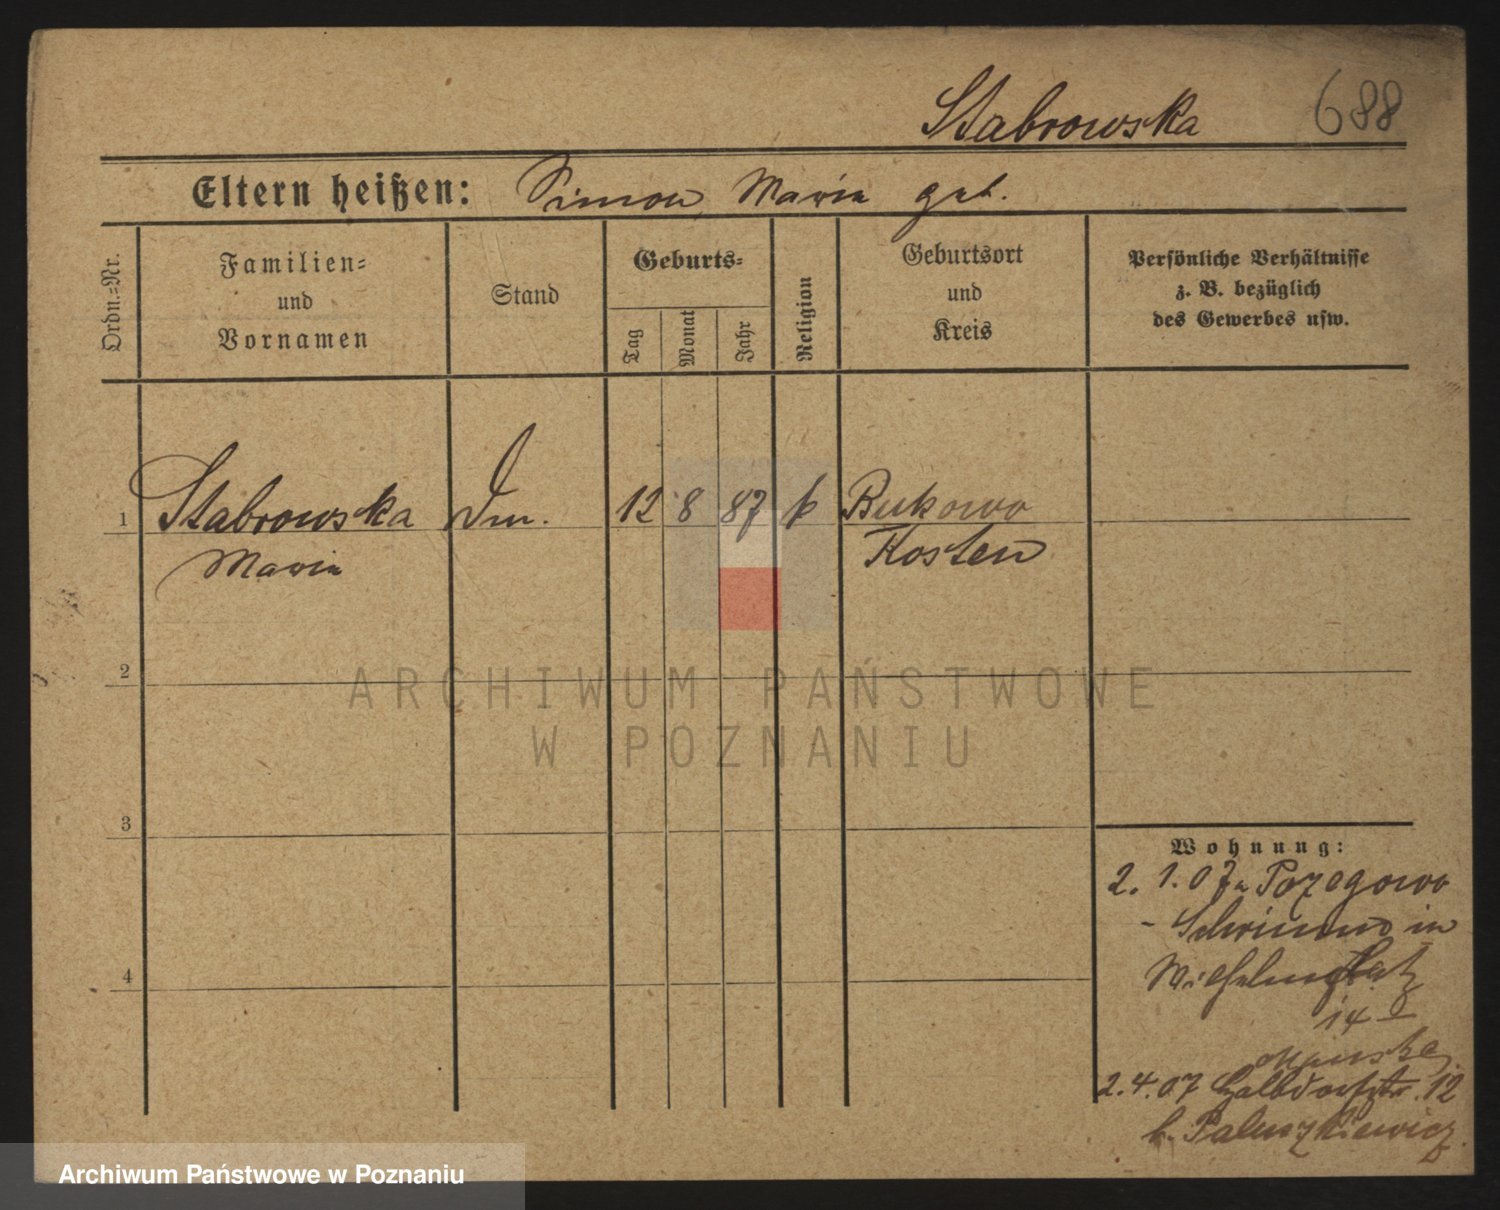 Stabrowska 688
Eltern heißen: Simon, Maria geb.
Ordn.-Nr.
Familien-
und
Vornamen
Stand
Geburts-
Tag
Monat
Jahr
Religion
Geburtsort
und
Kreis
Persönliche Verhältnisse
z. B. bezüglich
des Gewerbes usw.
1 Stabrowska 12 8 87 k Bukowo
Maria Kosten
2
3
4
Wohnung:
2. 1. 07
- Schrimm in
Wilhelmplatz
14
2.4.07 Halbdorfstr. 12
b. Paluszkiewicz
ARCHIWUM PAŃSTWOWE
W POZNANIU
Archiwum Państwowe w Poznaniu